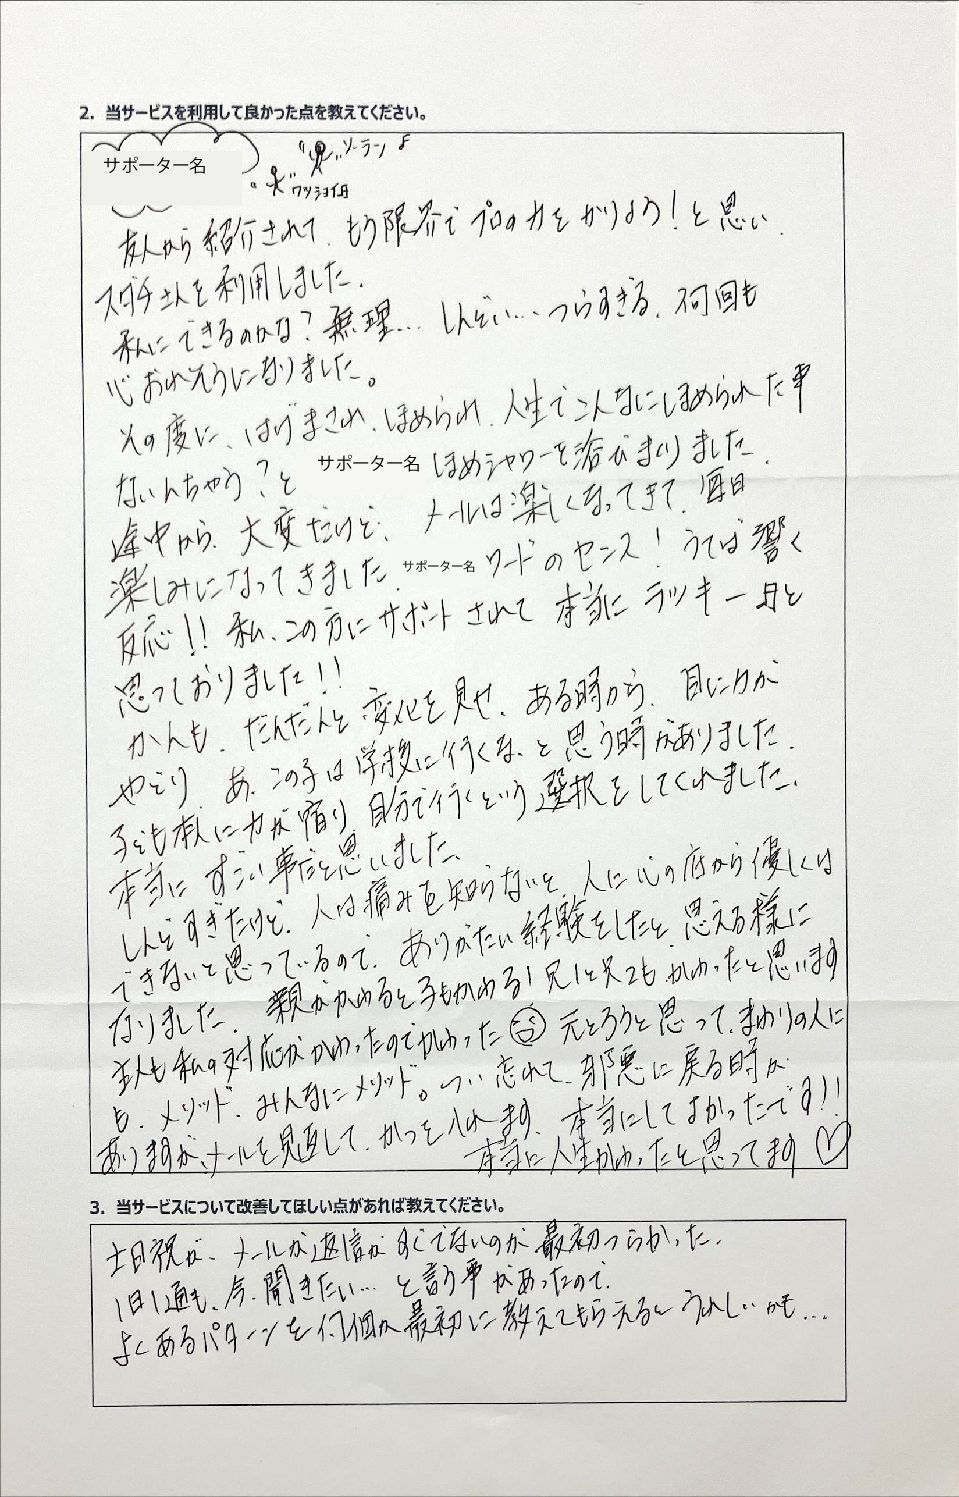 2. 当サービスを利用して良かった点を教えてください。
サポーター名
ソーラン♪
ワッショイ
友人から紹介されて、もう限界でプロの力をかりよう!と思い、
スダチさんを利用しました。
私にできるのかな?無理... しんどい... つらすぎる、何回も
心おれそうになりました。
その度に、はげまされ、ほめられ、人生でこんなにほめられた事
ないんちゃう?と サポーター名 ほめシャワーを浴びまくりました。
途中から、大変だけど、メールは楽しくなってきて、毎日
楽しみになってきました。サポーター名 ワードのセンス!うてば響く
反応!!私、この方にサポートされて本当にラッキー♬と
思っておりました!!
かんも、だんだんと変化を見せ、ある時から、目に力が
やどり、あ、この子は学校に行くな、と思う時がありました。
子ども本人に力が宿り、自分で行くという選択をしてくれました。
本当にすごい事だと思いました。
しんどすぎたけど、人は痛みを知らないと、人に心の底から優しくは
できないと思っているので、ありがたい経験をしたと思える様に
なりました。親がかわると子もかわる!兄1と兄2もかわったと思います
主人も私の対応がかわったのでかわった 元とろうと思って、まわりの人に
も、メソッド、みんなにメソッド。つい忘れて、邪悪に戻る時が
ありますが、メールを見直して、かつを入れます。本当にしてよかったです!!
本当に人生かわったと思ってます♡
3. 当サービスについて改善してほしい点があれば教えてください。
土日祝が、メールが返信がすぐでないのが最初つらかった。
1日1通も、今、聞きたい... と言う事があったので、
よくあるパターンを何個か最初に教えてもらえるとうれしいかも...